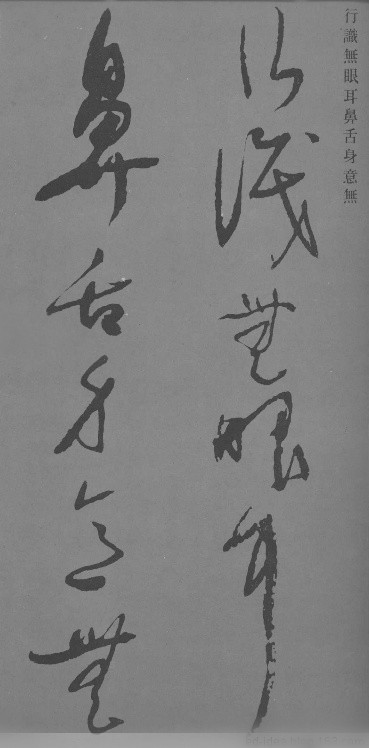 行識無眼耳鼻舌身意無
行識無眼耳
鼻舌身意無